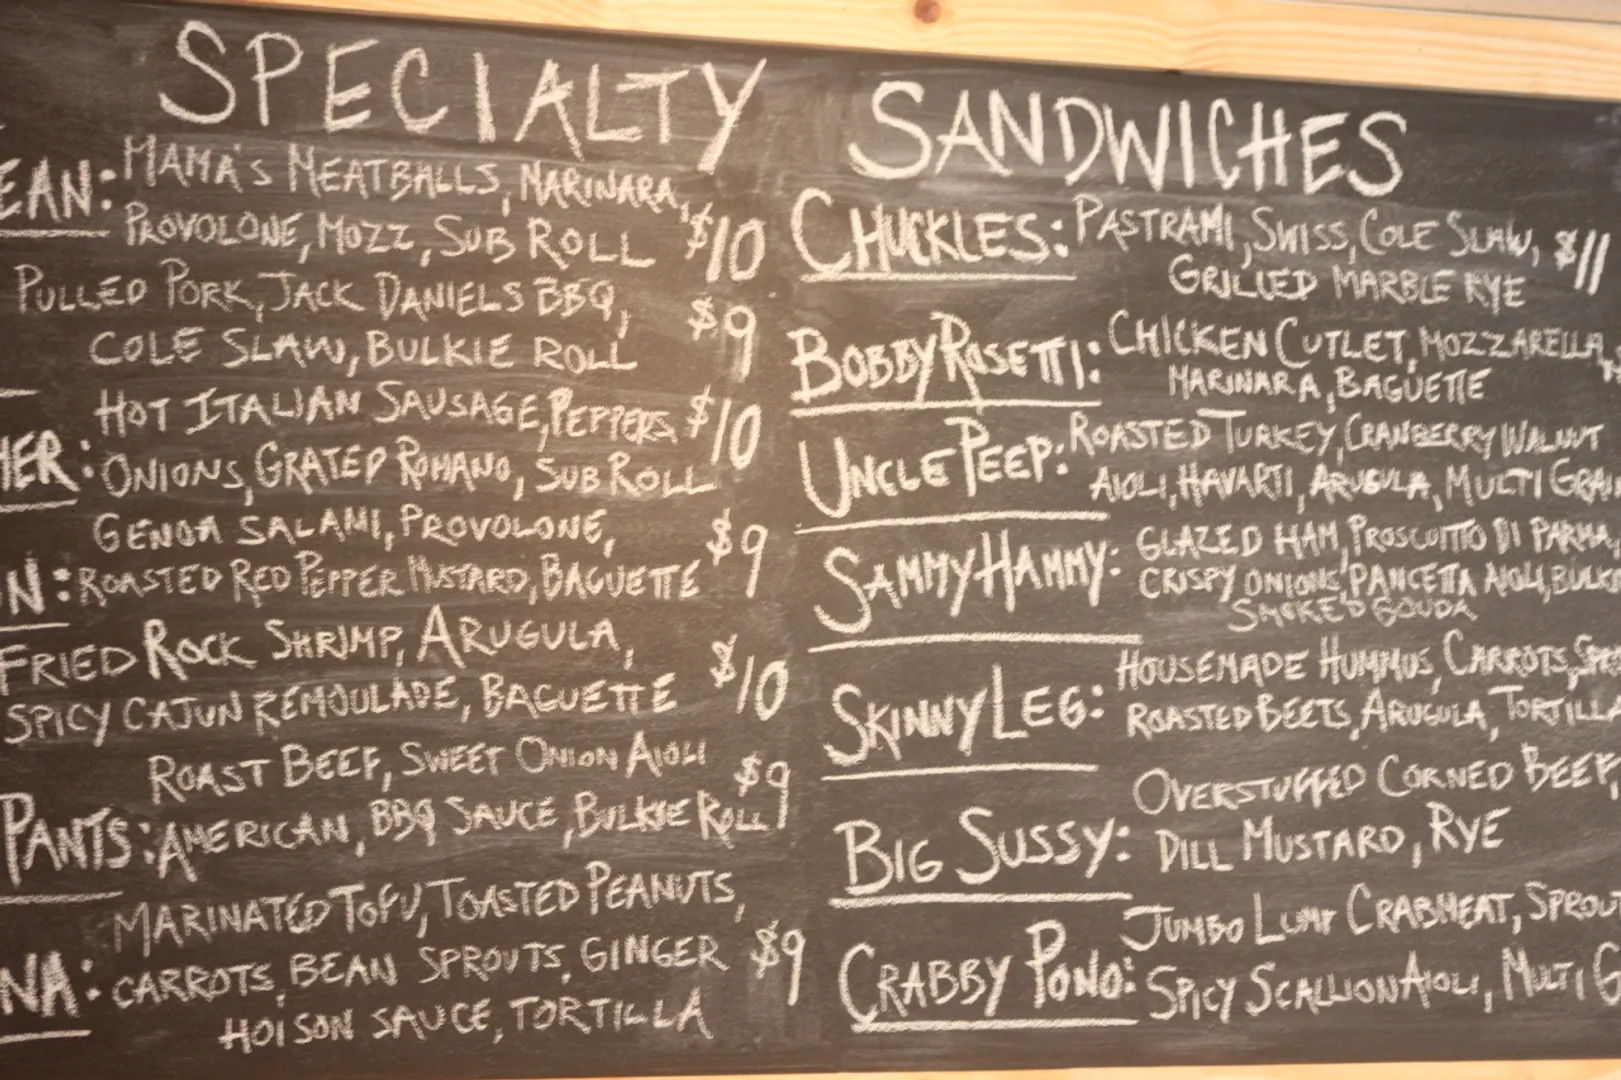 SPECIALTY SANDWICHES
EAN: MAMA'S MEATBALLS, MARINARA,
PROVOLONE, MOZZ, SUB ROLL $10
PULLED PORK, JACK DANIELS BBQ,
COLE SLAW, BULKIE ROLL $9
HOT ITALIAN SAUSAGE, PEPPERS $10
HER: ONIONS, GRATED ROMANO, SUB ROLL
GENOA SALAMI, PROVOLONE, $9
N: ROASTED RED PEPPER MUSTARD, BAGUETTE
FRIED ROCK SHRIMP, ARUGULA,
SPICY CAJUN REMOULADE, BAGUETTE $10
ROAST BEEF, SWEET ONION AIOLI $9
PANTS: AMERICAN, BBQ SAUCE, BULKIE ROLL
MARINATED TOFU, TOASTED PEANUTS,
NA: CARROTS, BEAN SPROUTS, GINGER $9
HOISON SAUCE, TORTILLA
CHUCKLES: PASTRAMI, SWISS, COLE SLAW, $11
GRILLED MARBLE RYE
BOBBY ROSETTI: CHICKEN CUTLET, MOZZARELLA,
MARINARA, BAGUETTE
UNCLE PEEP: ROASTED TURKEY, CRANBERRY WALNUT
AIOLI, HAVARTI, ARUGULA, MULTI GRAI
SAMMY HAMMY: GLAZED HAM, PROSCUITTO DI PARMA,
CRISPY ONIONS, PANCETTA AIOLI, BULKI
SMOKED GOUDA
SKINNY LEG: HOUSEMADE HUMMUS, CARROTS, SPR
ROASTED BEETS, ARUGULA, TORTILLA
BIG SUSSY: OVERSTUFFED CORNED BEEF,
DILL MUSTARD, RYE
CRABBY PONO: JUMBO LUMP CRABMEAT, SPROU
SPICY SCALLION AIOLI, MULTI G